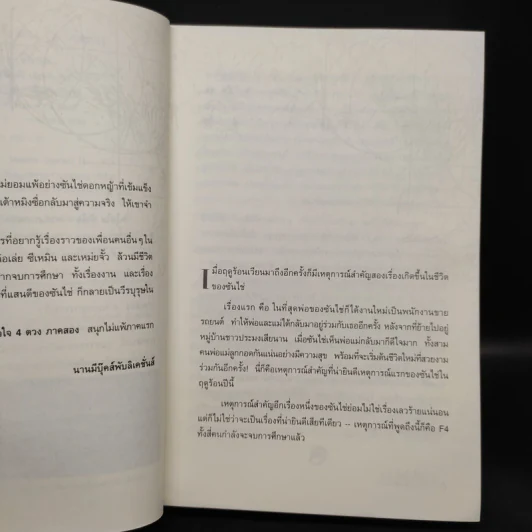 ม่ยอมแพ้อย่างซันไช่ดอกหญ้าที่เข้มแข็ง
เต้าหมิงซื่อกลับมาสู่ความจริง ให้เขาจำ
รที่อยากรู้เรื่องราวของเพื่อนคนอื่นๆใน
อเล่ย ซีเหมิน และเหม่ยจั้ว ล้วนมีชีวิต
ากจบการศึกษา ทั้งเรื่องงาน และเรื่อง
ที่แสนดีของซันไช่ ก็กลายเป็นวีรบุรุษใน
งใจ 4 ดวง ภาคสอง สนุกไม่แพ้ภาคแรก
นานมีบุ๊คส์พับลิเคชั่นส์
เมื่อฤดูร้อนเวียนมาถึงอีกครั้งก็มีเหตุการณ์สำคัญสองเรื่องเกิดขึ้นในชีวิต
ของซันไช่
เรื่องแรก คือ ในที่สุดพ่อของซันไช่ก็ได้งานใหม่เป็นพนักงานขาย
รถยนต์ ทำให้พ่อและแม่ได้กลับมาอยู่ร่วมกับเธออีกครั้ง หลังจากที่ย้ายไปอยู่
หมู่บ้านชาวประมงเสียนาน เมื่อซันไช่เห็นพ่อแม่กลับมาก็ดีใจมาก ทั้งสาม
คนพ่อแม่ลูกกอดกันแน่นอย่างมีความสุข พร้อมที่จะเริ่มต้นชีวิตใหม่ที่สวยงาม
ร่วมกันอีกครั้ง! นี่ก็คือเหตุการณ์สำคัญที่น่ายินดีเหตุการณ์แรกของซันไช่ใน
ฤดูร้อนปีนี้
เหตุการณ์สำคัญอีกเรื่องหนึ่งของซันไช่ย่อมไม่ใช่เรื่องเลวร้ายแน่นอน
แต่ก็ไม่ใช่ว่าจะเป็นเรื่องที่น่ายินดีเสียทีเดียว – เหตุการณ์ที่พูดถึงนี้ก็คือ F4
ทั้งสี่คนกำลังจะจบการศึกษาแล้ว